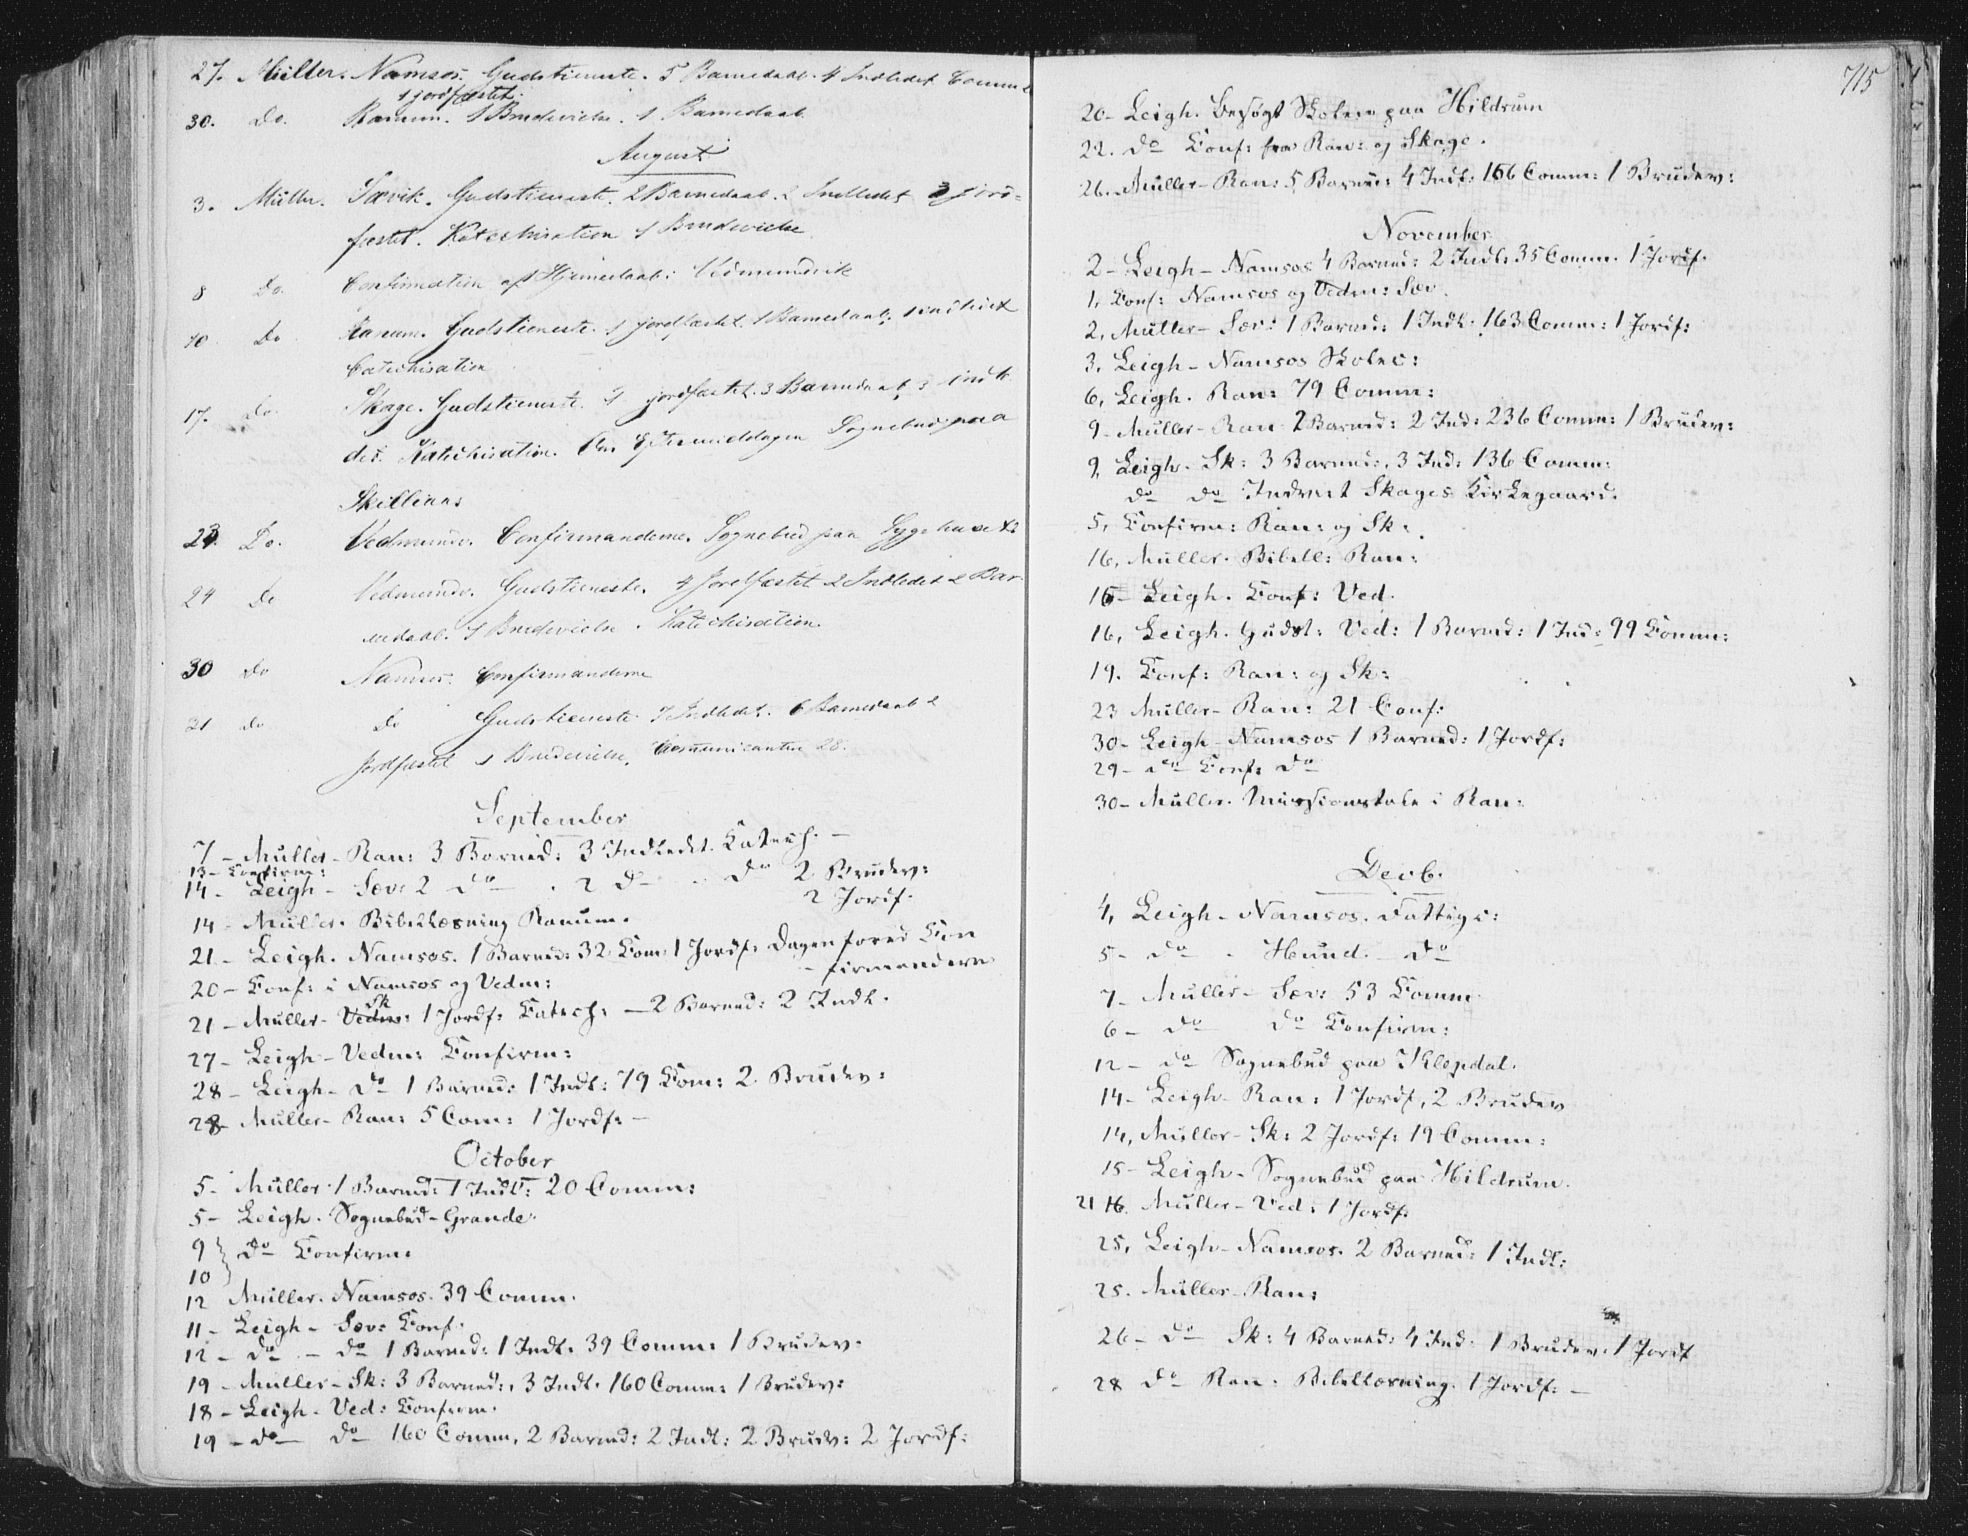 27. Müller. Namsos. Gudstieneste. 5 Barnedaab. 4 Indledet Commu
1 jordfæstet.
30. Do. Ranum. 1 Brudevielse. 1 Barnedaab.
August
3. Müller. Sævik. Gudstieneste. 2 Barnedaab. 2 Indledet 3 jord=
fæstet. Katechisation 1 Brudevielse
8 Do. Confirmation af Hjemedaab: Vedmundvik
10. Do Ranum. Gudstieneste. 1 jordfæstet. 1 Barnedaab. 1 indledet
Catechisation
17. Do. Skage. Gudstieneste. 1 jordfæstet. 3 Barnedaab, 3 indle
det. Katechisation. Om Eftermiddagen Sognebud paa
Skillinaas
23. Do. Vedmundv. Confirmanderne. Sognebud paa Sygehuset
24 Do Vedmundv. Gudstieneste. 4 Jordfæstet 2 Indledet 2 Bar
nedaab. 1 Brudevielse. Katechisation.
30 Do Namsos. Confirmanderne
21 do do Gudstieneste. 7 Indledet. 6 Barnedaab 2
Jordfæstet 1 Brudevielse. Communicanter 28.
September
7 – Müller – Ran: 3 Barned: 3 Indledt. Catech. –
13 – Confirm:
14 – Leigh – Sæv: 2 do – . 2 do – . do 2 Brudev:
2 Jordf.
14 – Müller. Bibellæsning Ranum.
21 – Leigh. Namsos. 1 Barned: 32 Com: 1 Jordf: Dagen forud Con
– firmanderne
20 – Conf: i Namsos og Vedm:
Sk
21 – Müller – Vedm: 1 Jordf: Catech: – 2 Barned: 2 Indl.
27 – Leigh – Vedm: Confirm:
28 – Leigh – do 1 Barned: 1 Indl: 79 Com: 2 Brudev:
28 – Müller – Ran: 5 Com: 1 Jordf: –
October
5 – Müller. 1 Barned: 1 Indl: 20 Comm:
5 – Leigh. Sognebud – Grande.
9 } do Confirm:
10 }
12 Müller. Namsos. 39 Comm.
11 – Leigh – Sæv: Conf.
12 – do – do 1 Barned: 1 Indl. 39 Comm: 1 Brudev.
19 – Müller – Sk: 3 Barned:, 3 Indl. 160 Comm: 1 Brudev:
18 – Leigh – Ved: Confirm.
19 – do – do 160 Comm, 2 Barned: 2 Indl: 2 Brudv: 2 Jordf:
715
20 – Leigh. Besøgt Skolen paa Hildrum
22. do Conf: fra Ran: og Skage.
26. Müller – Ran: 5 Barned: 4 Indl: 166 Comm: 1 Brudev:
November
2 – Leigh – Namsos 4 Barned: 2 Indl: 35 Comm. 1 Jordf.
1, Conf: Namsos og Vedm: Sæv.
2, Müller – Sæv: 1 Barned: 1 Indl: 163 Comm: 1 Jordf:
3. Leigh – Namsos Skolec:
6, Leigh. Ran: 79 Comm:
9 – Müller – Ran 2 Barned: 2 Ind: 236 Comm: 1 Brudev:
9, Leigh. Sk: 3 Barned:, 3 Ind: 136 Comm:
do do Indviet Skages Kirkegaard.
5, Confirm: Ran: og Sk:
16, Müller. Bibell: Ran:
15 – Leigh. Conf: Ved.
16, Leigh. Gudst: Ved: 1 Barned: 1 Ind: 99 Comm:
19. Conf: Ran: og Sk:
23 Müller – Ran: 21 Conf:
30 – Leigh – Namsos 1 Barned: 1 Jordf:
29 – do Conf: do
30 – Müller. Missionstale i Ran:
Decb.
4, Leigh – Namsos. Fattigc:
5 – do . Hund. – do
7 – Müller – Sæv: 53 Comm.
6 – do do Confirm:
12 – do Sognebud paa Klepdal.
14 – Leigh – Ran: 1 Jordf, 2 Brudev
14, Müller – Sk: 2 Jordf: 19 Comm:
15 – Leigh – Sognebud paa Hildrum.
21 16. Müller – Ved: 1 Jordf:
25, Leigh – Namsos. 2 Barned: 1 Indl:
25. Müller – Ran:
26 – do Sk: 4 Barned: 4 Ind. 1 Brudev. 1 Jordf
28 do Ran. Bibellæsning. 1 Jordf: –